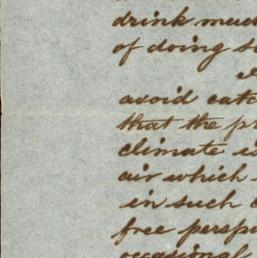 drink much
of doing s
avoid catc
that the pr
climate is
air which
in such a
free perspi
occasional